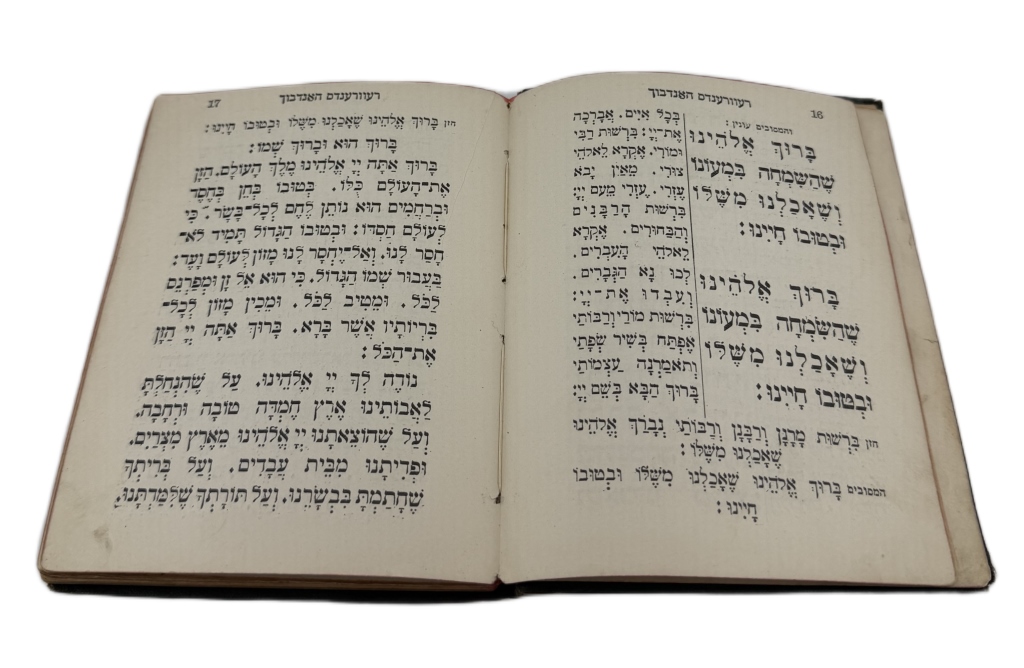 16 רעווערענדס האַנדבוך
והמסובים עונין:
בָּרוּךְ אֱלֹהֵינוּ
שֶׁהַשִּׂמְחָה בִּמְעוֹנוֹ
וְשֶׁאָכַלְנוּ מִשֶּׁלּוֹ
וּבְטוּבוֹ חָיִינוּ:
בָּרוּךְ אֱלֹהֵינוּ
שֶׁהַשִּׂמְחָה בִּמְעוֹנוֹ
וְשֶׁאָכַלְנוּ מִשֶּׁלּוֹ
וּבְטוּבוֹ חָיִינוּ:
בְּכָל אִיִּים. אֲבָרְכָה
אֶת־יְיָ: בִּרְשׁוּת רַבִּי
וּמוֹרִי. אֶקְרָא לֵאלֹהֵי
צוּרִי. מֵאַיִן יָבֹא
עֶזְרִי. עֶזְרִי מֵעִם יְיָ:
בִּרְשׁוּת הָרַבָּנִים
וְהַבַּחוּרִים. אֶקְרָא
לֵאלֹהֵי הָעִבְרִים.
לְכוּ נָא הַגְּבָרִים.
וְעִבְדוּ אֶת־יְיָ:
בִּרְשׁוּת מוֹרַי וְרַבּוֹתַי
אֶפְתַּח בְּשִׁיר שְׂפָתַי
וְתֹאמַרְנָה עַצְמוֹתַי
בָּרוּךְ הַבָּא בְּשֵׁם יְיָ:
חזן בִּרְשׁוּת מָרָנָן וְרַבָּנָן וְרַבּוֹתַי נְבָרֵךְ אֱלֹהֵינוּ
שֶׁאָכַלְנוּ מִשֶּׁלּוֹ:
המסובים בָּרוּךְ אֱלֹהֵינוּ שֶׁאָכַלְנוּ מִשֶּׁלּוֹ וּבְטוּבוֹ
חָיִינוּ:
רעווערענדס האַנדבוך 17
חזן בָּרוּךְ אֱלֹהֵינוּ שֶׁאָכַלְנוּ מִשֶּׁלּוֹ וּבְטוּבוֹ חָיִינוּ:
בָּרוּךְ הוּא וּבָרוּךְ שְׁמוֹ:
בָּרוּךְ אַתָּה יְיָ אֱלֹהֵינוּ מֶלֶךְ הָעוֹלָם. הַזָּן
אֶת־הָעוֹלָם כֻּלּוֹ. בְּטוּבוֹ בְּחֵן בְּחֶסֶד
וּבְרַחֲמִים הוּא נוֹתֵן לֶחֶם לְכָל־בָּשָׂר. כִּי
לְעוֹלָם חַסְדּוֹ: וּבְטוּבוֹ הַגָּדוֹל תָּמִיד לֹא־
חָסַר לָנוּ. וְאַל־יֶחְסַר לָנוּ מָזוֹן לְעוֹלָם וָעֶד:
בַּעֲבוּר שְׁמוֹ הַגָּדוֹל. כִּי הוּא אֵל זָן וּמְפַרְנֵס
לַכֹּל. וּמֵטִיב לַכֹּל. וּמֵכִין מָזוֹן לְכָל־
בְּרִיּוֹתָיו אֲשֶׁר בָּרָא. בָּרוּךְ אַתָּה יְיָ הַזָּן
אֶת־הַכֹּל:
נוֹדֶה לְךָ יְיָ אֱלֹהֵינוּ. עַל שֶׁהִנְחַלְתָּ
לַאֲבוֹתֵינוּ אֶרֶץ חֶמְדָּה טוֹבָה וּרְחָבָה.
וְעַל שֶׁהוֹצֵאתָנוּ יְיָ אֱלֹהֵינוּ מֵאֶרֶץ מִצְרַיִם.
וּפְדִיתָנוּ מִבֵּית עֲבָדִים. וְעַל בְּרִיתְךָ
שֶׁחָתַמְתָּ בִּבְשָׂרֵנוּ. וְעַל תּוֹרָתְךָ שֶׁלִּמַּדְתָּנוּ.